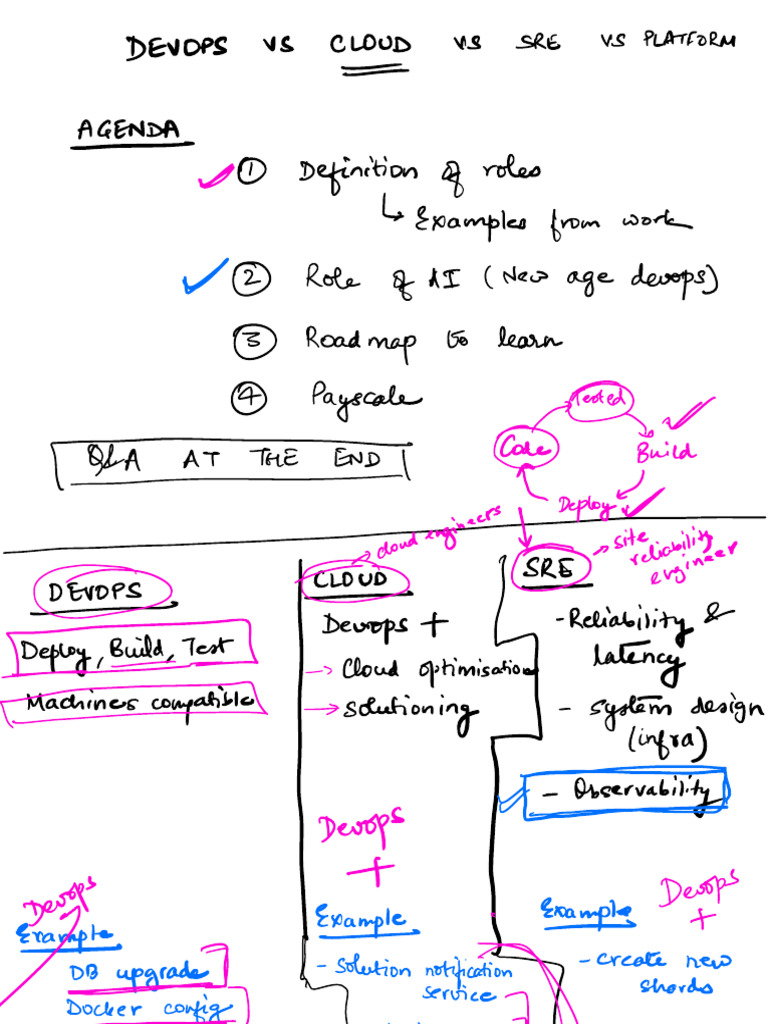 DEVOPS vs CLOUD vs SRE vs PLATFORM
AGENDA
① Definition of roles
↳ Examples from work
② Role of AI (New age devops)
③ Roadmap to learn
④ Payscale
Q&A AT THE END
Tested
Code
Build
Deploy
cloud engineers
site
reliability
engineer
DEVOPS
Deploy, Build, Test
Machines compatible
Devops
Example
DB upgrade
Docker config
CLOUD
Devops +
→ Cloud optimisation
→ solutioning
Devops
+
Example
- Solution notification
service
SRE
- Reliability &
latency
- system design
(infra)
- Observability
Devops
+
Example
- create new
shards